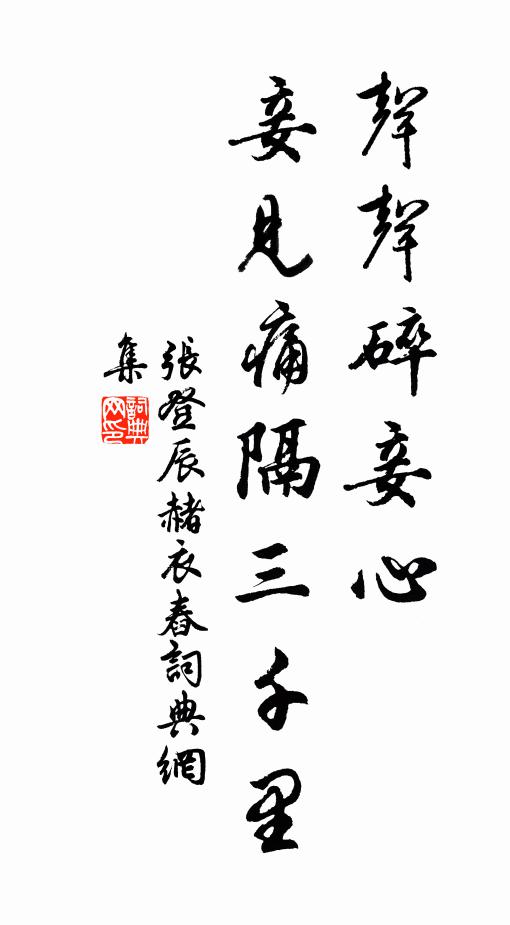 聲聲碎妾心
妾見痛隔三千里
張登辰赭衣舂詞典網
集
詞典
网印